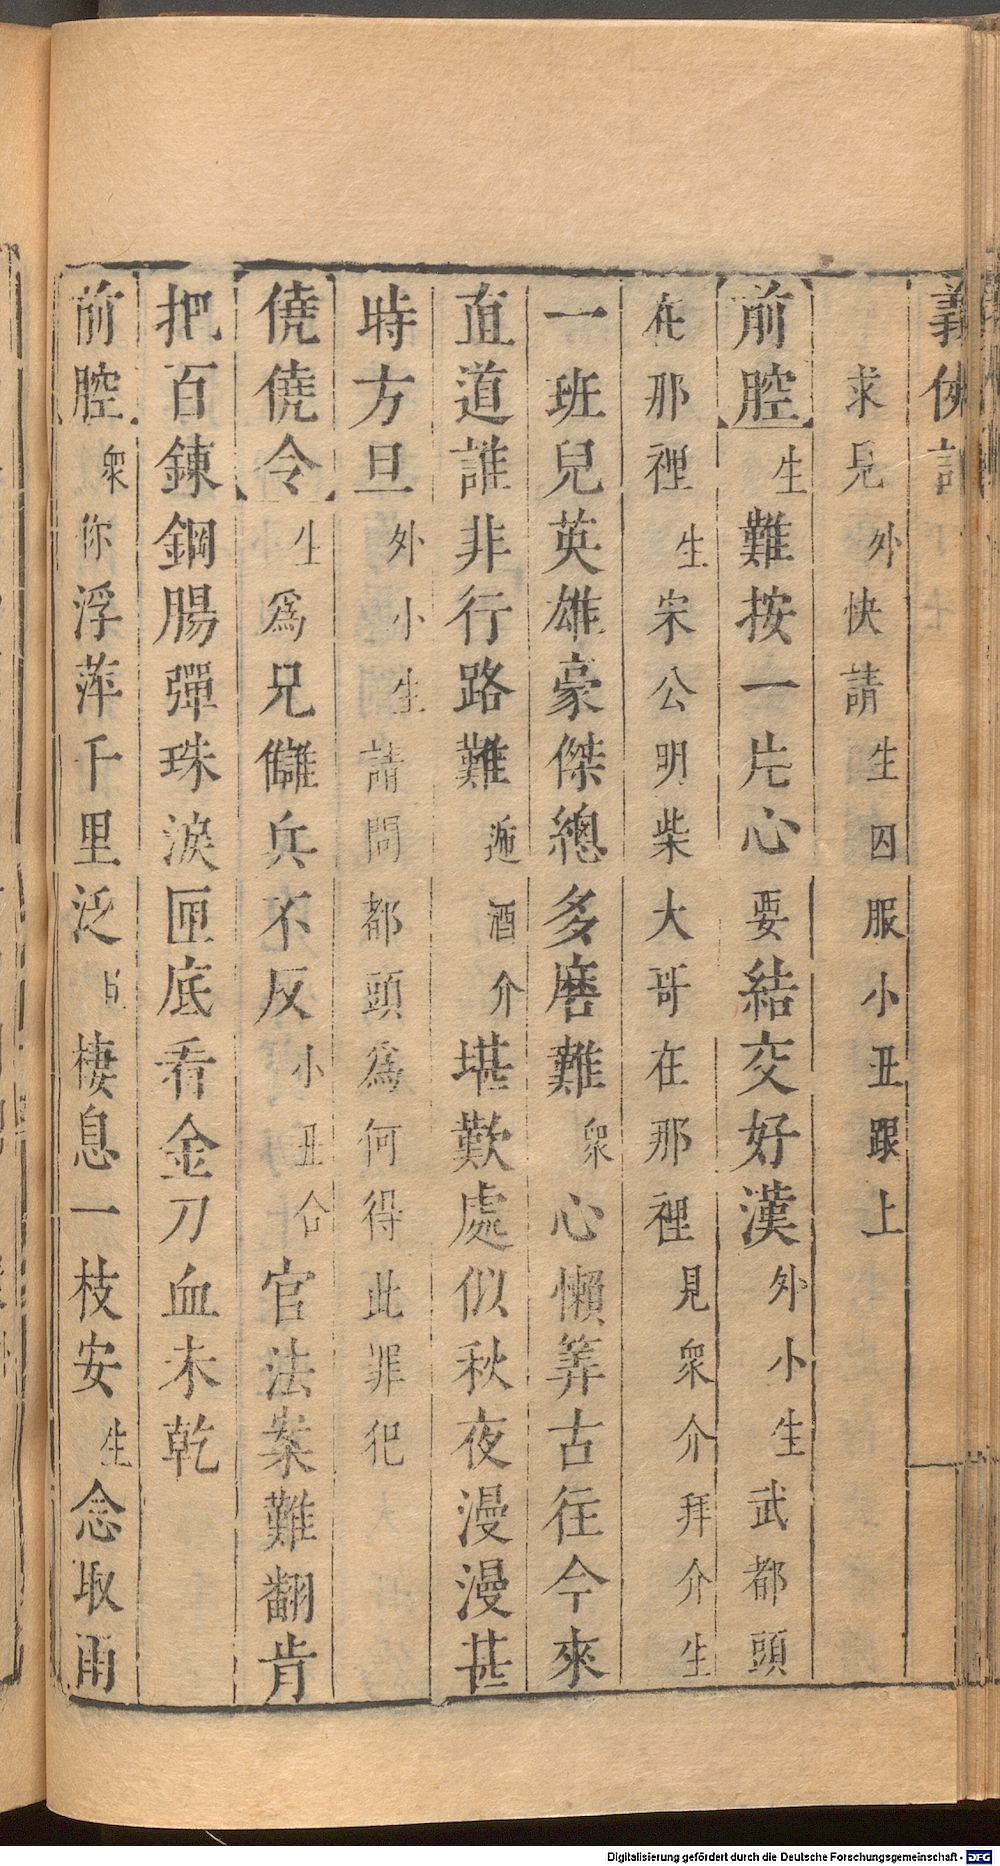 義俠記
求見外快請生囚服小丑跟上
前腔生難按一片心要結交好漢外小生武都頭
在那裡生宋公明柴大哥在那裡見衆介拜介生
一班兒英雄豪傑總多磨難衆心懶筭古往今來
直道誰非行路難遞酒介堪歎處似秋夜漫漫甚
時方旦外小生請問都頭爲何得此罪犯
僥僥令生爲兄讎兵不反小丑合官法案難翻肯
把百鍊鋼腸彈珠淚匣底看金刀血未乾
前腔衆你浮萍千里泛占棲息一枝安生念取雨
Digitalisierung gefördert durch die Deutsche Forschungsgemeinschaft - DFG